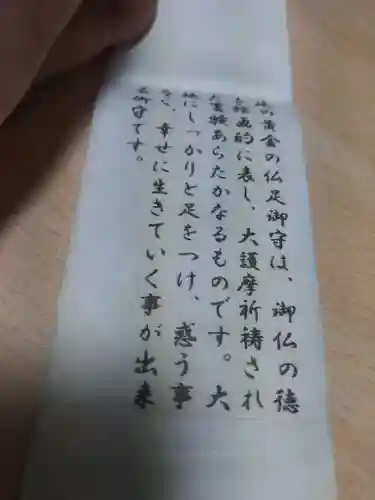 の黄金の仏足御守は、御仏の徳
を絵画的に表し、大護摩祈祷され
た霊験あらたかなるものです。大
地にしっかりと足をつけ、惑う事
なく、幸せに生きていく事が出来
る御守です。